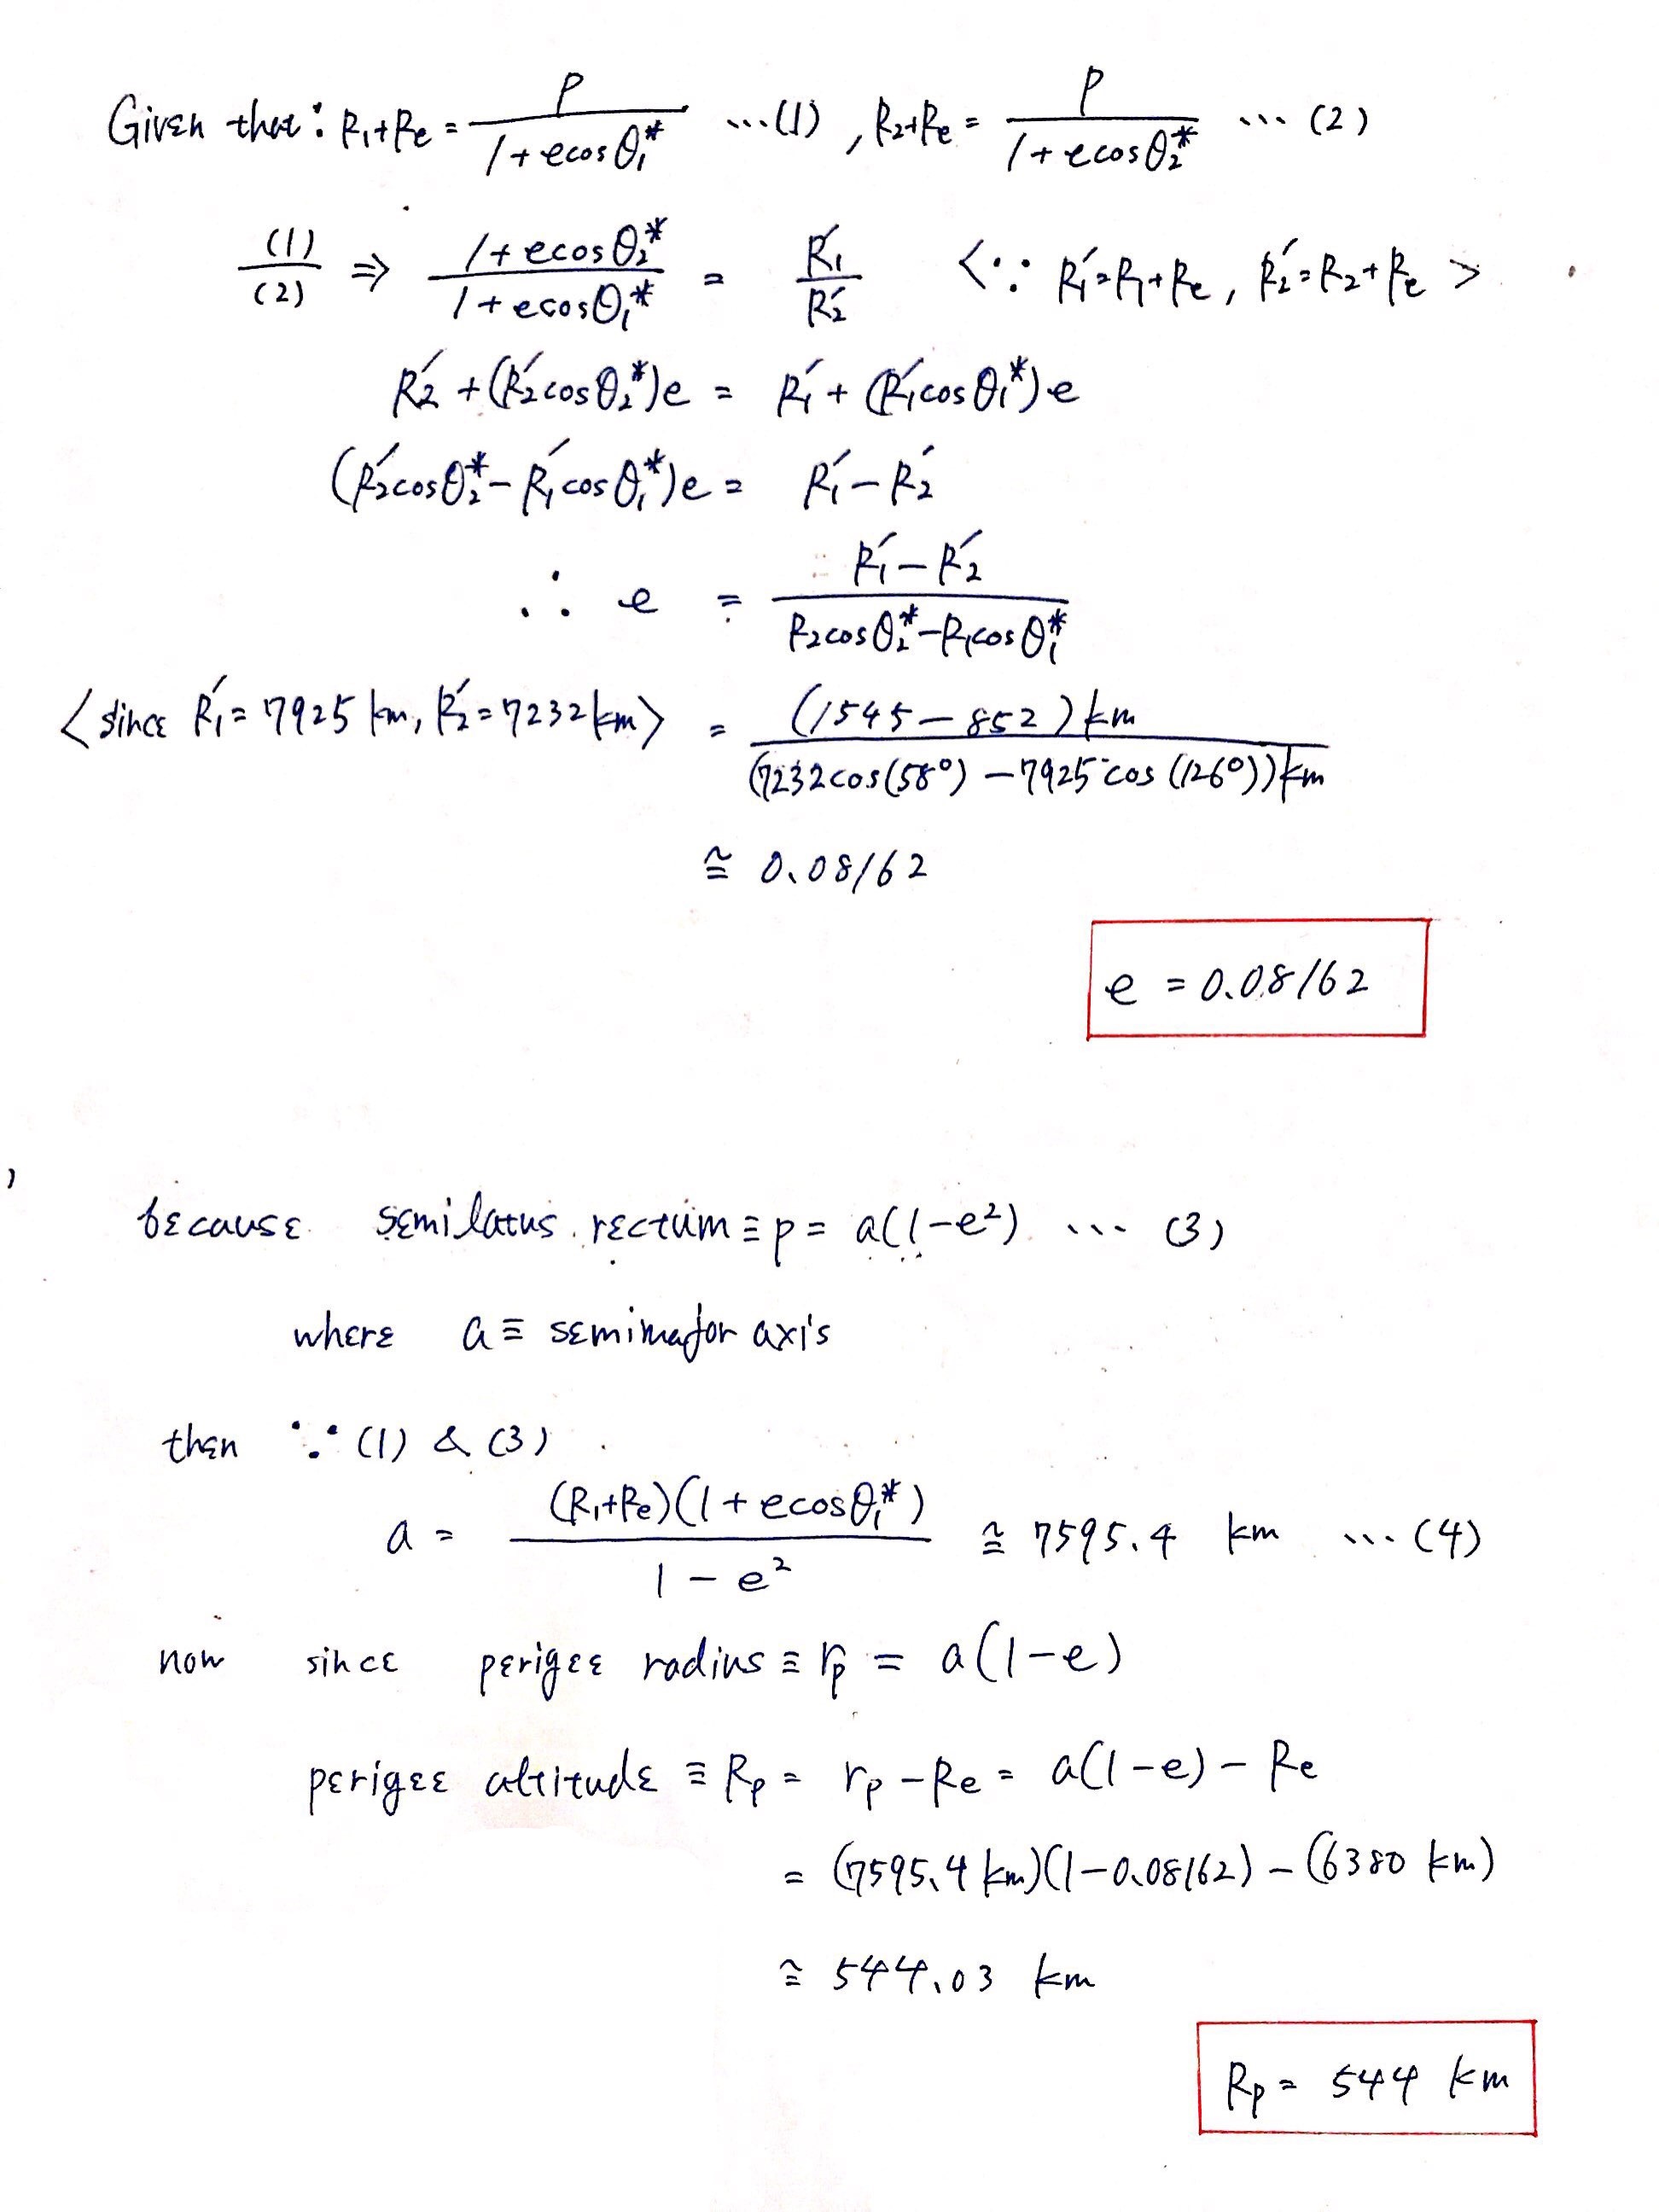 Given that: R₁+Re = P / (1+ecosθ₁*) ...(1) , R₂+Re = P / (1+ecosθ₂*) ... (2)
(1)/(2) ⇒ (1+ecosθ₂*) / (1+ecosθ₁*) = R₁′/R₂′ <∵ R₁′=R₁+Re, R₂′=R₂+Re>
R₂′ + (R₂′cosθ₂*)e = R₁′ + (R₁′cosθ₁*)e
(R₂′cosθ₂* − R₁′cosθ₁*)e = R₁′ − R₂′
∴ e = (R₁′ − R₂′) / (R₂cosθ₂* − R₁cosθ₁*)
<since R₁′ = 7925 km, R₂′ = 7232 km> = (1545 − 852) km / (7232cos(58°) − 7925cos(126°)) km
≅ 0.08162
e = 0.08162
because semilatus rectum ≡ p = a(1−e²) ... (3)
where a ≡ semimajor axis
then ∵ (1) & (3)
a = (R₁+Re)(1+ecosθ₁*) / (1−e²) ≅ 7595.4 km ... (4)
now since perigee radius ≡ rp = a(1−e)
perigee altitude ≡ Rp = rp − Re = a(1−e) − Re
= (7595.4 km)(1−0.08162) − (6380 km)
≅ 544.03 km
Rp = 544 km